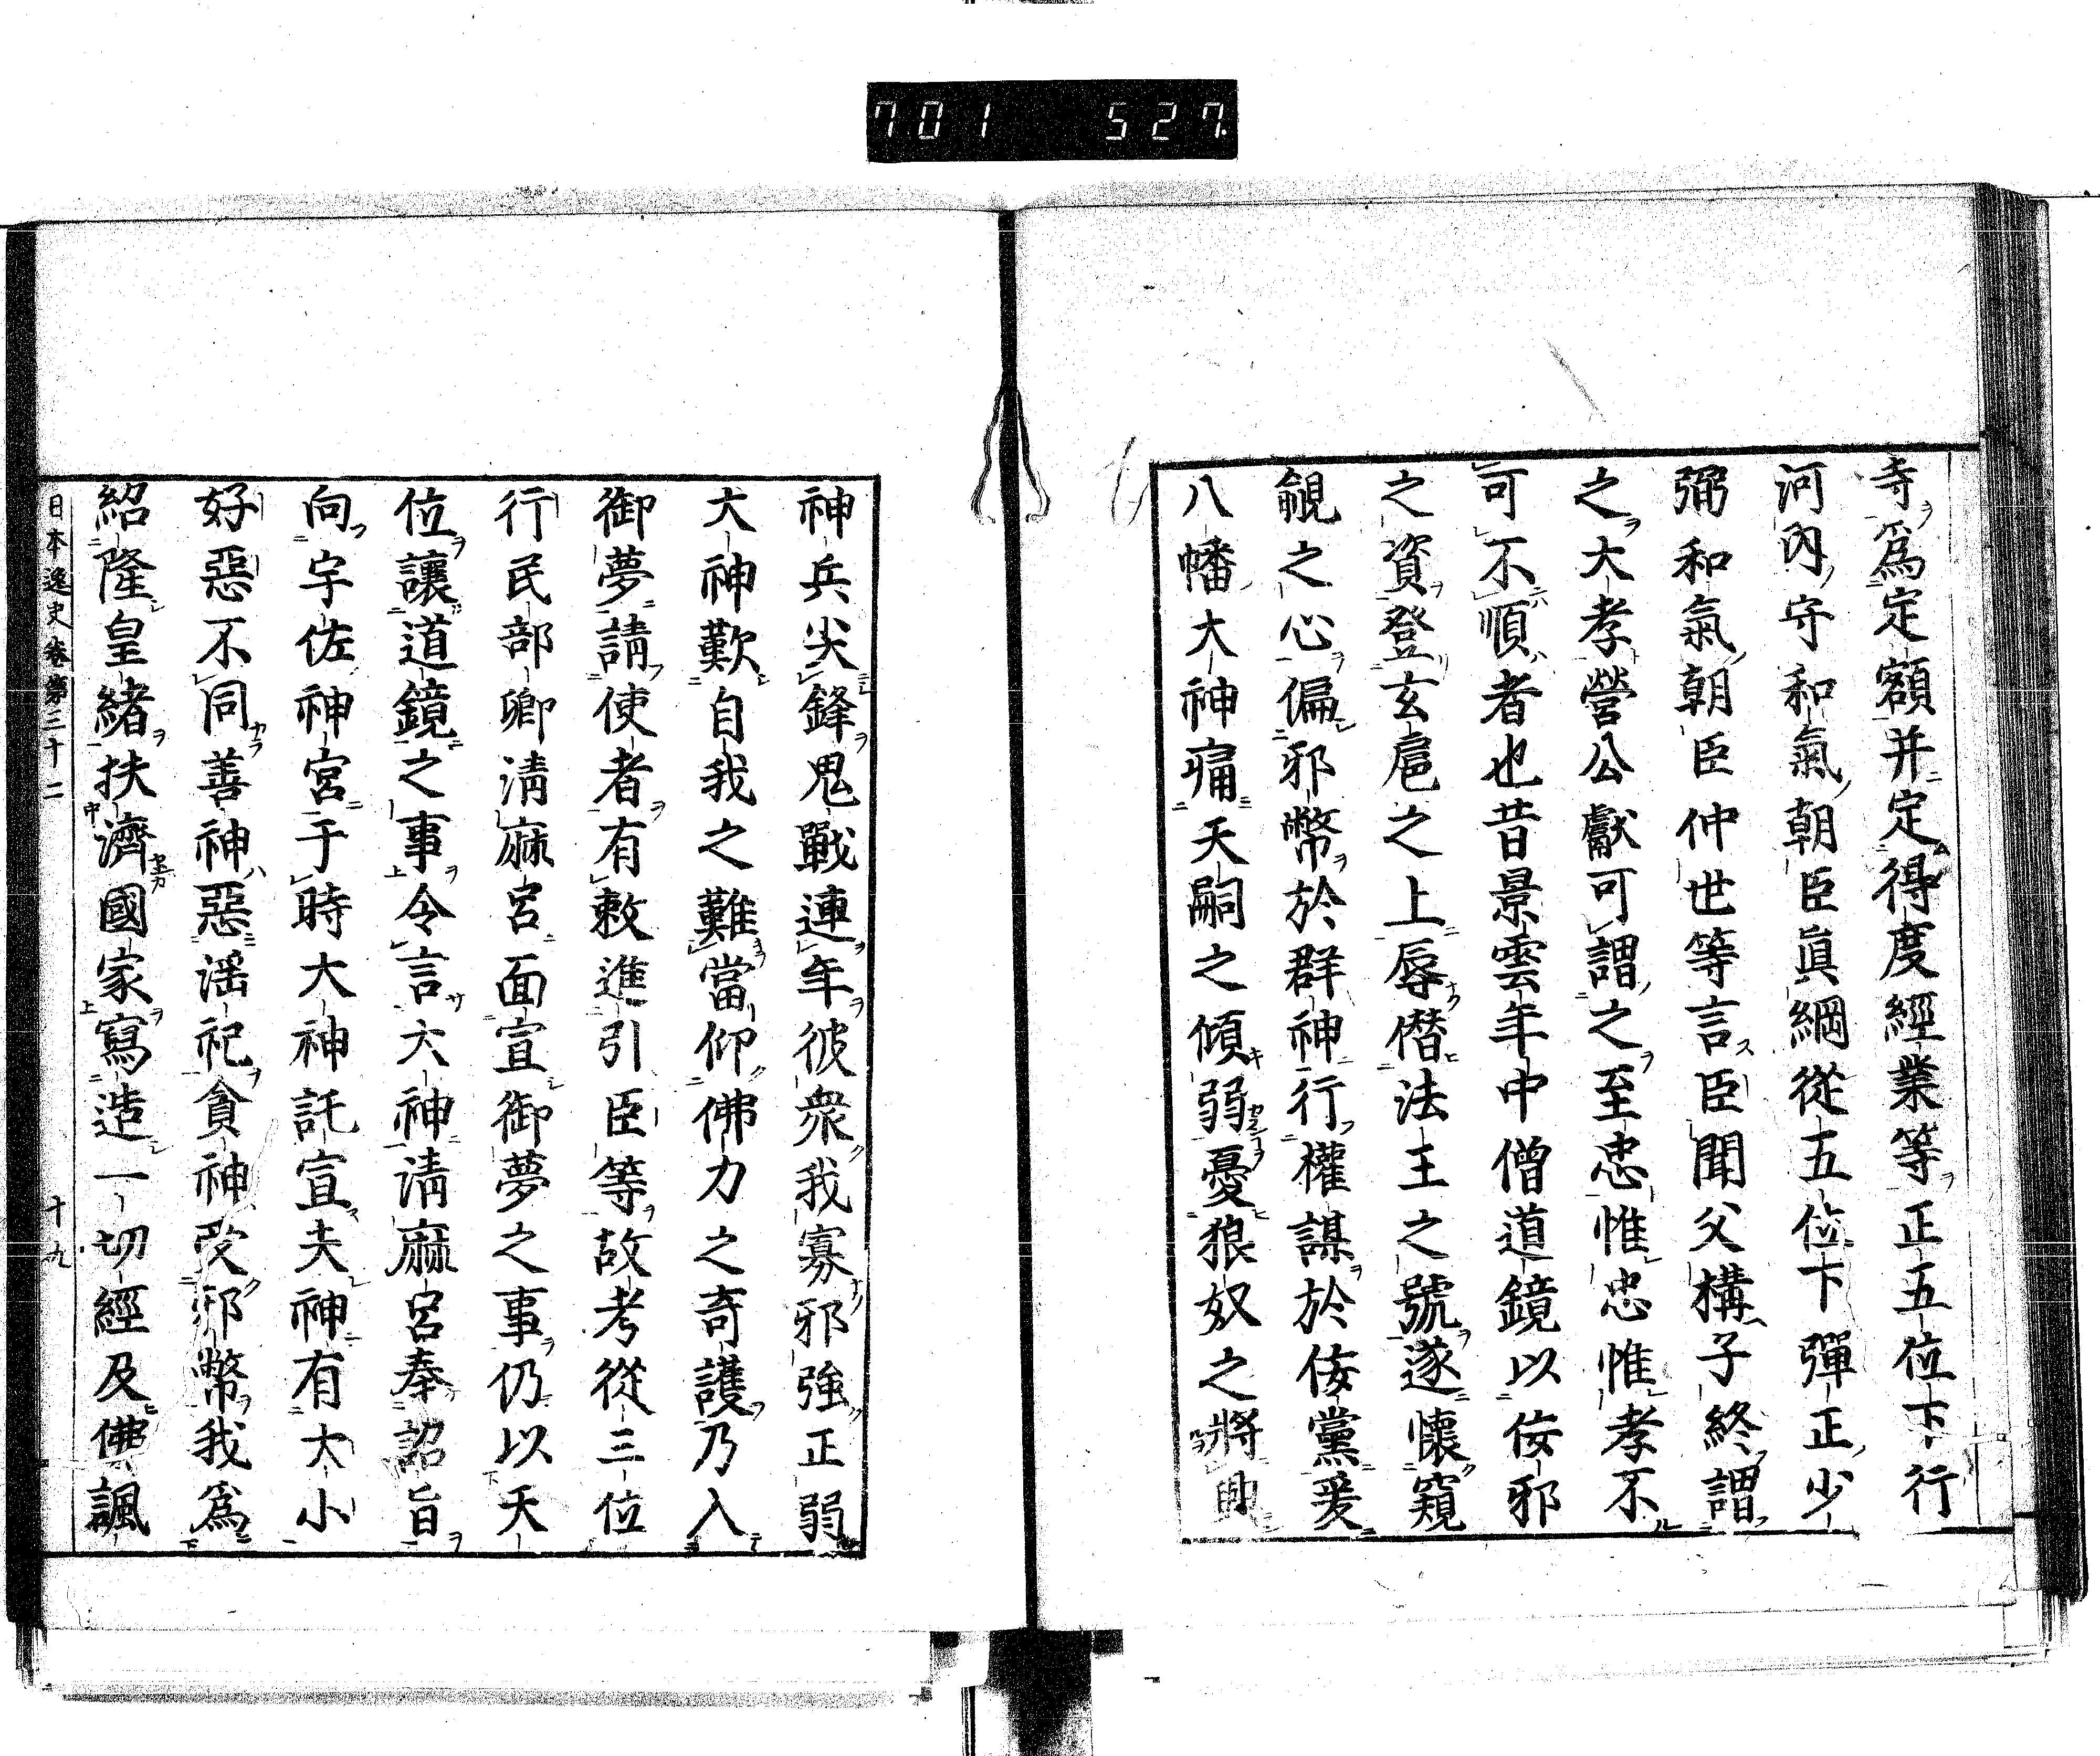 701 527
寺爲定額并定得度經業等正五位下行
河內守和氣朝臣眞綱從五位下彈正少
弼和氣朝臣仲世等言臣聞父構子終謂
之大孝營公獻可謂之至忠惟忠惟孝不
可不順者也昔景雲年中僧道鏡以佞邪
之資登玄扈之上辱僭法王之號遂懷窺
覦之心偏邪幣於群神行權謀於佞黨爰
八幡大神痛天嗣之傾弱憂狼奴之將興
神兵尖鋒鬼戰連年彼衆我寡邪強正弱
大神歎自我之難當仰佛力之奇護乃入
御夢請使者有敕進引臣等故考從三位
行民部卿淸麻呂面宣御夢之事仍以天
位讓道鏡之事令言大神淸麻呂奉詔旨
向宇佐神宮于時大神託宣夫神有大小
好惡不同善神惡淫祀貪神受邪幣我爲
紹隆皇緖扶濟國家寫造一切經及佛諷
日本逸史卷第三十二 十九